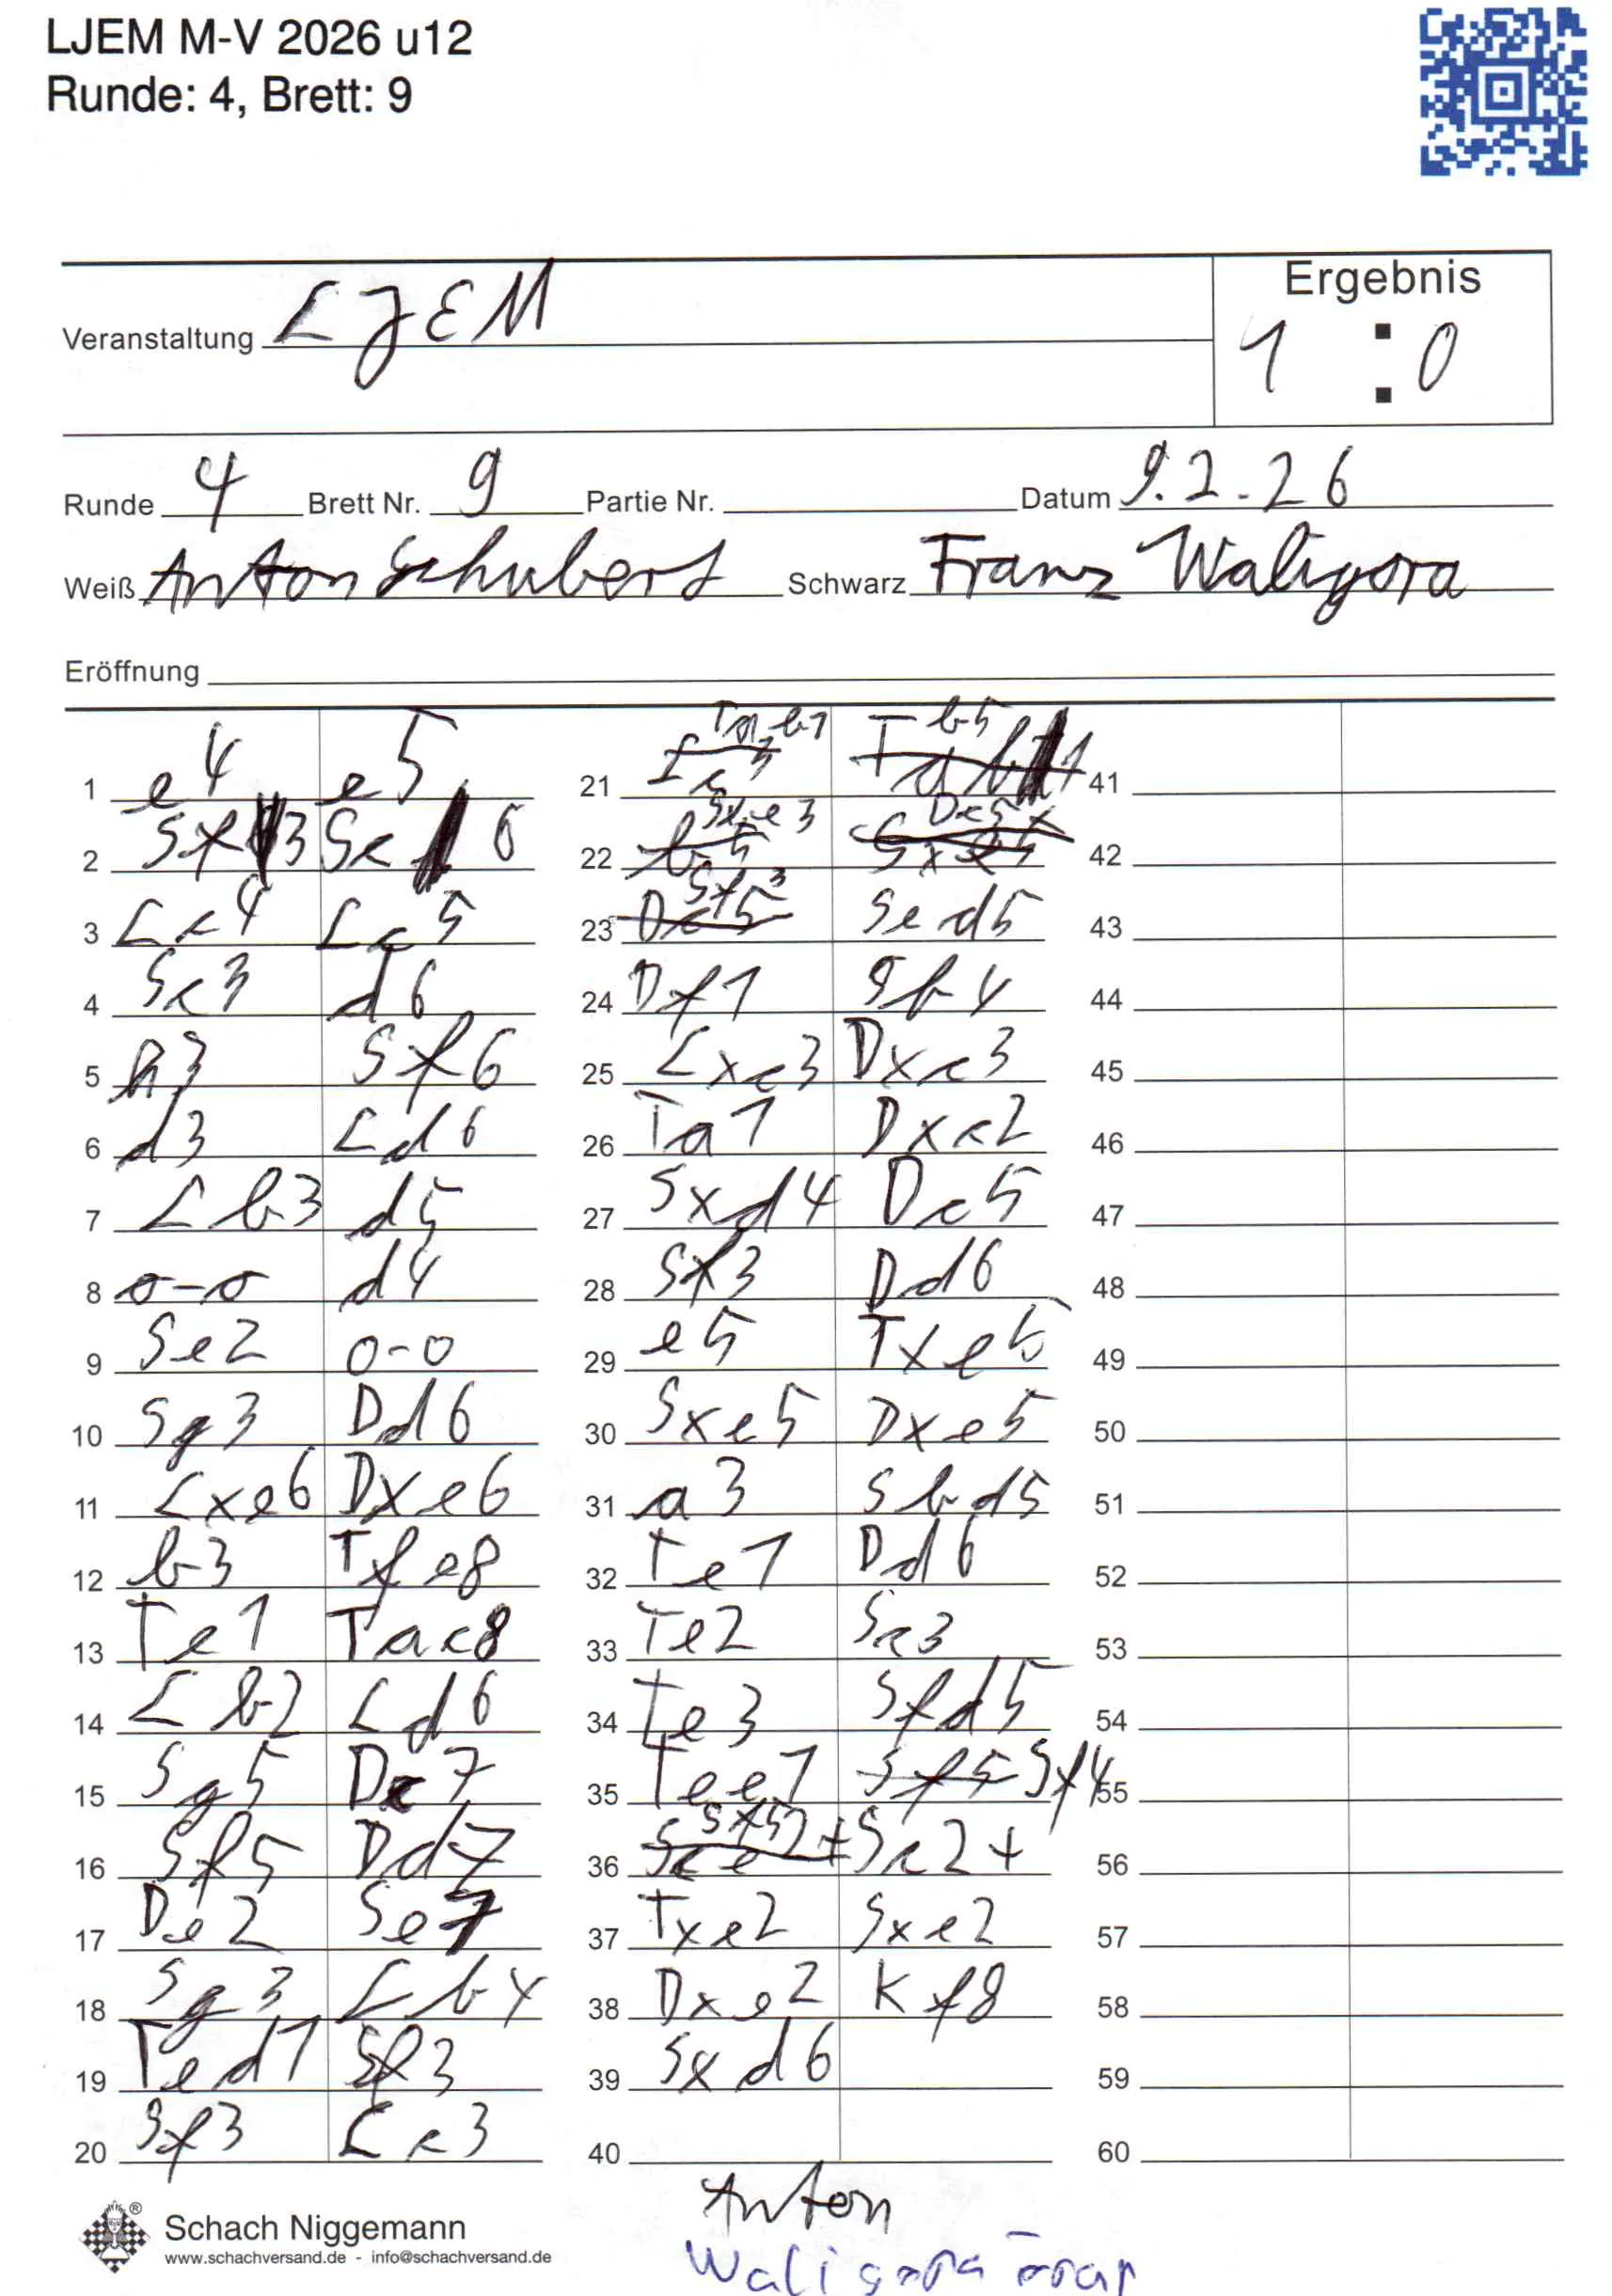 LJEM M-V 2026 u12
Runde: 4, Brett: 9
Ergebnis
Veranstaltung LJEM
1 : 0
Runde 4 Brett Nr. 9 Partie Nr. Datum 9.2.26
Weiß Anton Schubert Schwarz Franz Waligora
Eröffnung
1 e4 e5
2 Sf3 Sc6
3 Lc4 Lc5
4 Sc3 d6
5 h3 Sf6
6 d3 Ld6
7 Lb3 d5
8 0-0 d4
9 Se2 0-0
10 Sg3 Dd6
11 Lxe6 Dxe6
12 b3 Tfe8
13 Te1 Tac8
14 Lb2 Ld6
15 Sg5 De7
16 Sf5 Dd7
17 De2 Se7
18 Sg3 Lb4
19 Ted1 Sf3
20 Sf3 Lc3
21 Tab1 b5
22 Sxe3 Dc5
23 Sf3 Sed5
24 Df1 Sb4
25 Lxc3 Dxc3
26 Ta1 Dxc2
27 Sxd4 Dc5
28 Sf3 Dd6
29 e5 Txe5
30 Sxe5 Dxe5
31 a3 Sbd5
32 Te1 Dd6
33 Te2 Sc3
34 Te3 Sfd5
35 Tee1 Sf4
36 Sf5 Se2+
37 Txe2 Sxe2
38 Dxe2 Kf8
39 Sxd6
40
41
42
43
44
45
46
47
48
49
50
51
52
53
54
55
56
57
58
59
60
Anton
Waligora
Schach Niggemann
www.schachversand.de - info@schachversand.de